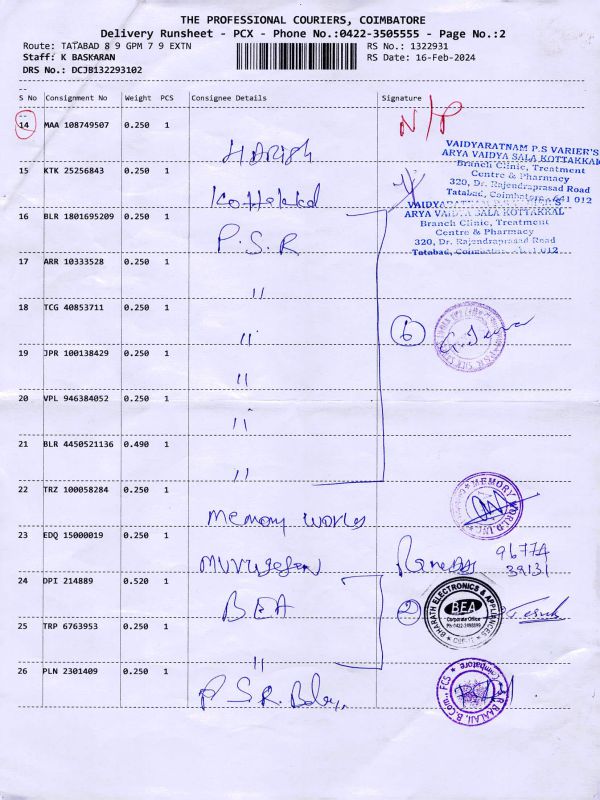 THE PROFESSIONAL COURIERS, COIMBATORE
Delivery Runsheet - PCX - Phone No.:0422-3505555 - Page No.:2
Route: TATABAD 8 9 GPM 7 9 EXTN
RS No.: 1322931
Staff: K BASKARAN
RS Date: 16-Feb-2024
DRS No.: DCJB132293102
S No Consignment No Weight PCS Consignee Details Signature
14 MAA 108749507 0.250 1
HARISH
N/P
VAIDYARATNAM P.S VARIER'S
ARYA VAIDYA SALA KOTTAKKAL
Branch Clinic, Treatment
Centre & Pharmacy
320, Dr. Rajendraprasad Road
Tatabad, Coimbatore - 641 012
15 KTK 25256843 0.250 1
Kottakkal
VAIDYARATNAM P.S VARIER'S
ARYA VAIDYA SALA KOTTAKKAL
Branch Clinic, Treatment
Centre & Pharmacy
320, Dr. Rajendraprasad Road
Tatabad, Coimbatore - 641 012
16 BLR 1801695209 0.250 1
P.S.R
17 ARR 10333528 0.250 1
"
18 TCG 40853711 0.250 1
"
6
19 JPR 100138429 0.250 1
"
20 VPL 946384052 0.250 1
"
21 BLR 4450521136 0.490 1
"
22 TRZ 100058284 0.250 1
Memory World
MEMORY WORLD INC
23 EDQ 15000019 0.250 1
Murugesan
96774
39131
24 DPI 214889 0.520 1
BEA
2
BHARATH ELECTRONICS & APPLIANCES
BEA
Corporate Office
25 TRP 6763953 0.250 1
"
26 PLN 2301409 0.250 1
P S R. Balaji